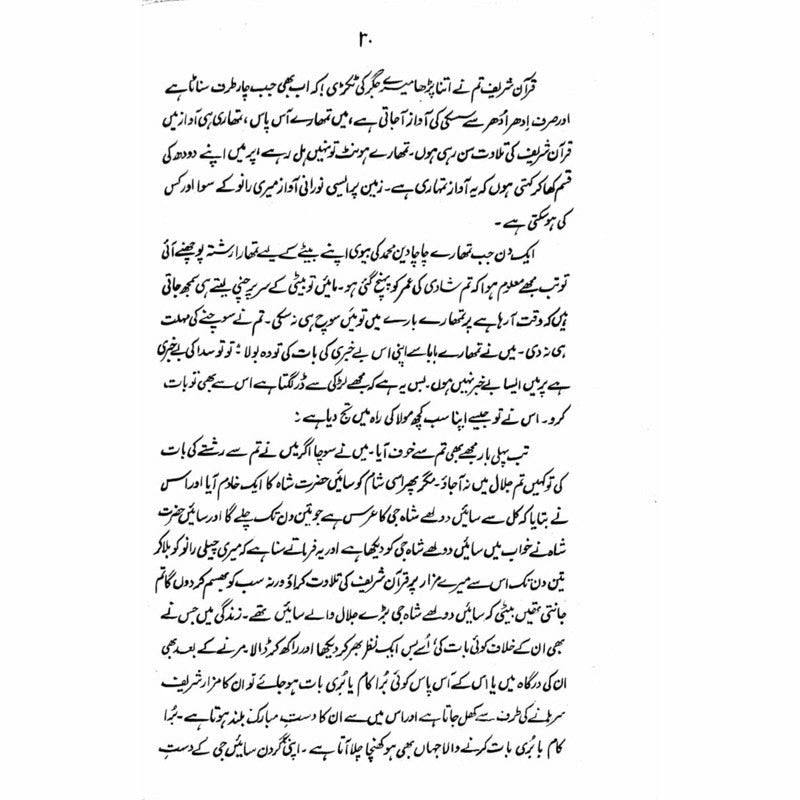 ۲۰
قرآن شریف تم نے اتنا پڑھا میرے جگر کی ٹکڑی! کہ اب بھی جب چار طرف سناٹا ہے
اور صرف اِدھر اُدھر سے سسکی کی آواز آ جاتی ہے، میں تمھارے آس پاس، تمھاری ہی آواز میں
قرآن شریف کی تلاوت سن رہی ہوں۔ تمھارے ہونٹ تو نہیں ہل رہے، پر میں اپنے دودھ کی
قسم کھا کر کہتی ہوں کہ یہ آواز تمہاری ہے۔ زمین پر ایسی نورانی آواز میری رانو کے سوا اور کس
کی ہو سکتی ہے۔
ایک دن جب تمھارے چاچا دین محمد کی بیوی اپنے بیٹے کے لیے تمھارا رشتہ پوچھنے آئی
تو تب مجھے معلوم ہوا کہ تم شادی کی عمر کو پہنچ گئی ہو۔ مائیں تو بیٹی کے سر پر چنی لیتے ہی سمجھ جاتی
ہیں کہ وقت آ رہا ہے پر تمھارے بارے میں تو میں سوچ ہی نہ سکی۔ تم نے سوچنے کی مہلت
ہی نہ دی۔ میں نے تمھارے بابا سے اپنی اس بے خبری کی بات کی تو وہ بولا: تو تو سدا کی بے خبری
ہے پر میں ایسا بے خبر نہیں ہوں۔ بس یہ ہے کہ مجھے لڑکی سے ڈر لگتا ہے اس سے بھی تو بات
کرو۔ اس نے تو جیسے اپنا سب کچھ مولا کی راہ میں تج دیا ہے:
تب پہلی بار مجھے بھی تم سے خوف آیا۔ میں نے سوچا اگر میں نے تم سے رشتے کی بات
کی تو کہیں تم جلال میں نہ آ جاؤ۔ مگر پھر اسی شام کو سائیں حضرت شاہ کا ایک خادم آیا اور اس
نے بتایا کہ کل سے سائیں دولھے شاہ جی کا عرس ہے جو تین دن تک چلے گا اور سائیں حضرت
شاہ نے خواب میں سائیں دولھے شاہ جی کو دیکھا ہے اور یہ فرماتے سنا ہے کہ میری چیلی رانو کو بلا کر
تین دن تک اس سے میرے مزار پر قرآن شریف کی تلاوت کراؤ ورنہ سب کو بھسم کر دوں گا تم
جانتی تھیں بیٹی کہ سائیں دولھے شاہ جی بڑے جلال والے سائیں تھے۔ زندگی میں جس نے
بھی ان کے خلاف کوئی بات کی اُسے بس ایک نظر بھر کر دیکھا اور راکھ کر ڈالا۔ مرنے کے بعد بھی
ان کی درگاہ میں یا اس کے آس پاس کوئی بُرا کام یا بُری بات ہو جائے تو ان کا مزار شریف
سرہانے کی طرف سے کھل جاتا ہے اور اس میں سے ان کا دستِ مبارک بلند ہوتا ہے۔ بُرا
کام یا بُری بات کرنے والا جہاں بھی ہو کھنچا چلا آتا ہے۔ اپنی گردن سائیں جی کے دستِ